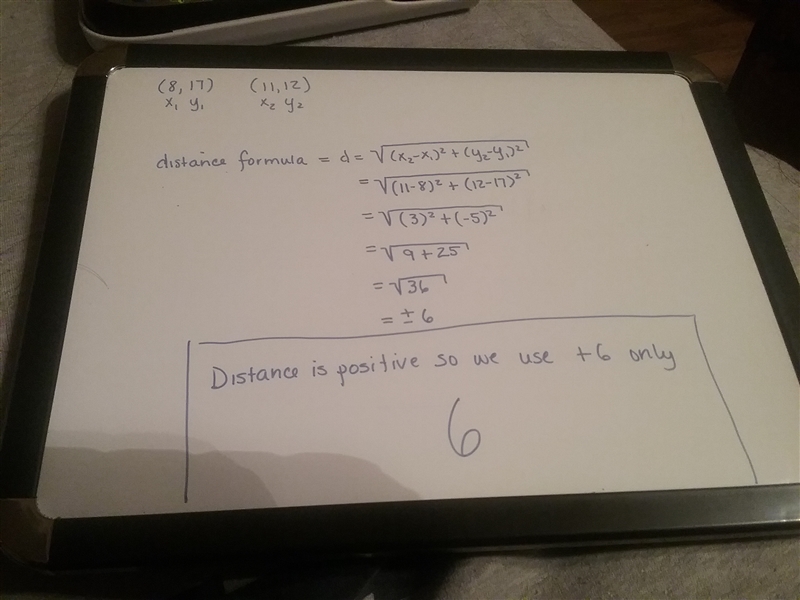 (8, 17) (11, 12)
x₁ y₁ x₂ y₂
distance formula = d = √(x₂-x₁)² + (y₂-y₁)²
= √(11-8)² + (12-17)²
= √(3)² + (-5)²
= √9 + 25
= √36
= ± 6
Distance is positive so we use +6 only
6